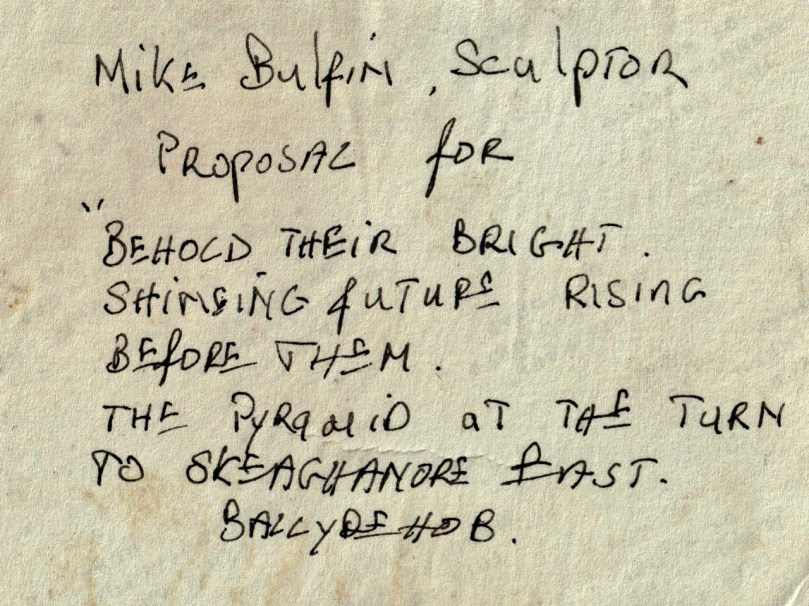 Mike Bulfin, Sculptor
Proposal for
"BEHOLD THEIR BRIGHT.
SHINEING fUTURE RISING
BEfORE THEM.
THE PyRamiD aT THE TURN
TO SKEAGHANORE EAST.
BALLyDEHOB.